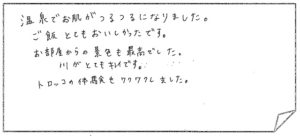 温泉でお肌がつるつるになりました。
ご飯とてもおいしかったです。
お部屋からの景色も最高でした。
川がとてもキレイです。
トロッコの体験もワクワクしました。